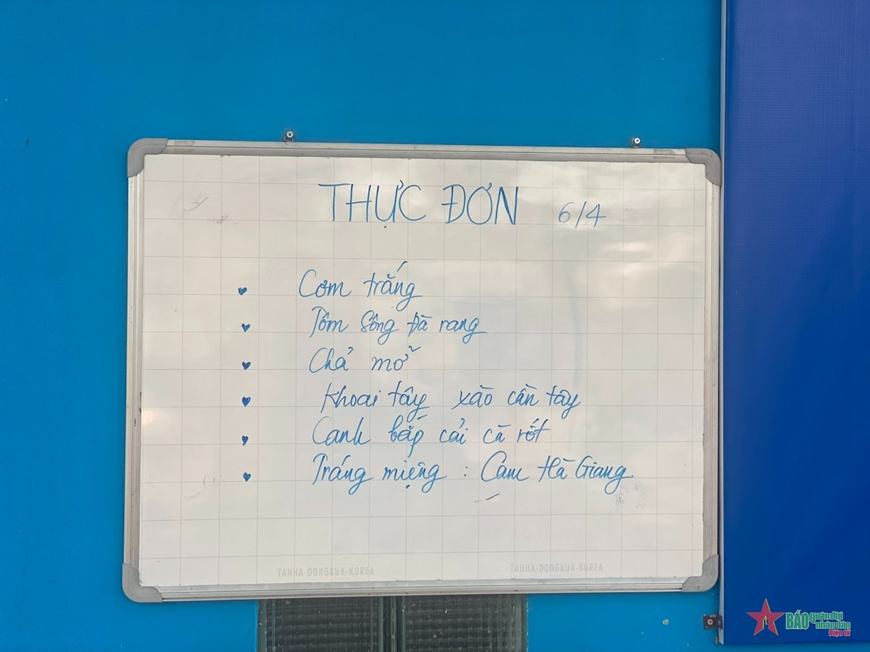 THỰC ĐƠN 6/4
Cơm trắng
Tôm Sông Đà rang
Chả mỡ
Khoai tây xào cần tây
Canh bắp cải cà rốt
Tráng miệng : Cam Hà Giang
TANHA-DONGKUK-KOREA TANHA-DONGKUK-KOREA
BÁO quân đội nhân dân Điện tử